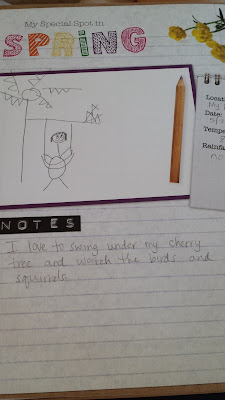 My Special Spot in
SPRiNG
Locati
My
Date:
5/9
Tempe
Rainfa
no
NOTES
I love to swing under my cherry
tree and watch the birds and
squirrels.